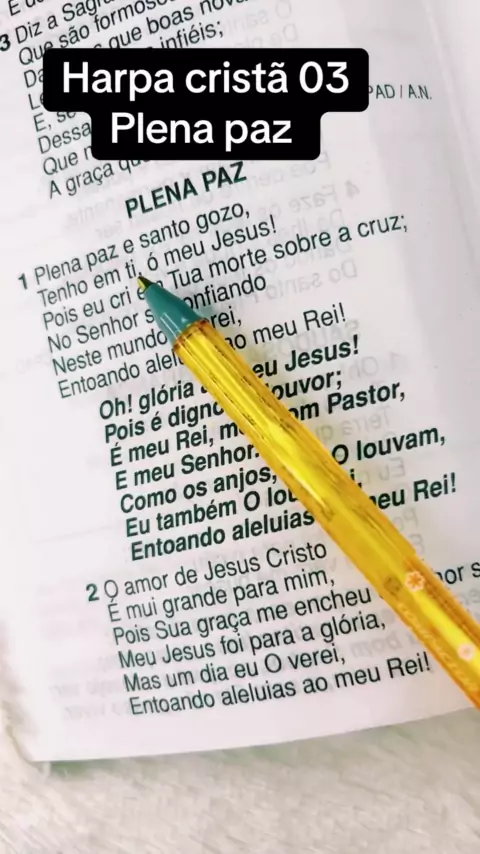 3 Diz a Sagr
Que são formoso
que boas nova
infiéis;
Harpa cristã 03
Plena paz
PAD / A.N.
E, se
Dessa
Que
A graça
PLENA PAZ
1 Plena paz e santo gozo,
Tenho em ti, ó meu Jesus!
Pois eu cri Tua morte sobre a cruz;
No Senhor confiando
Neste mundo rei,
Entoando ao meu Rei!
Oh! glória eu Jesus!
Pois é digno louvor;
É meu Rei, om Pastor,
E meu Senhor
Como os anjos, O louvam,
Eu também O
Entoando aleluias meu Rei!
2 O amor de Jesus Cristo
É mui grande para mim,
Pois Sua graça me encheu
Meu Jesus foi para a glória,
Mas um dia eu O verei,
Entoando aleluias ao meu Rei!